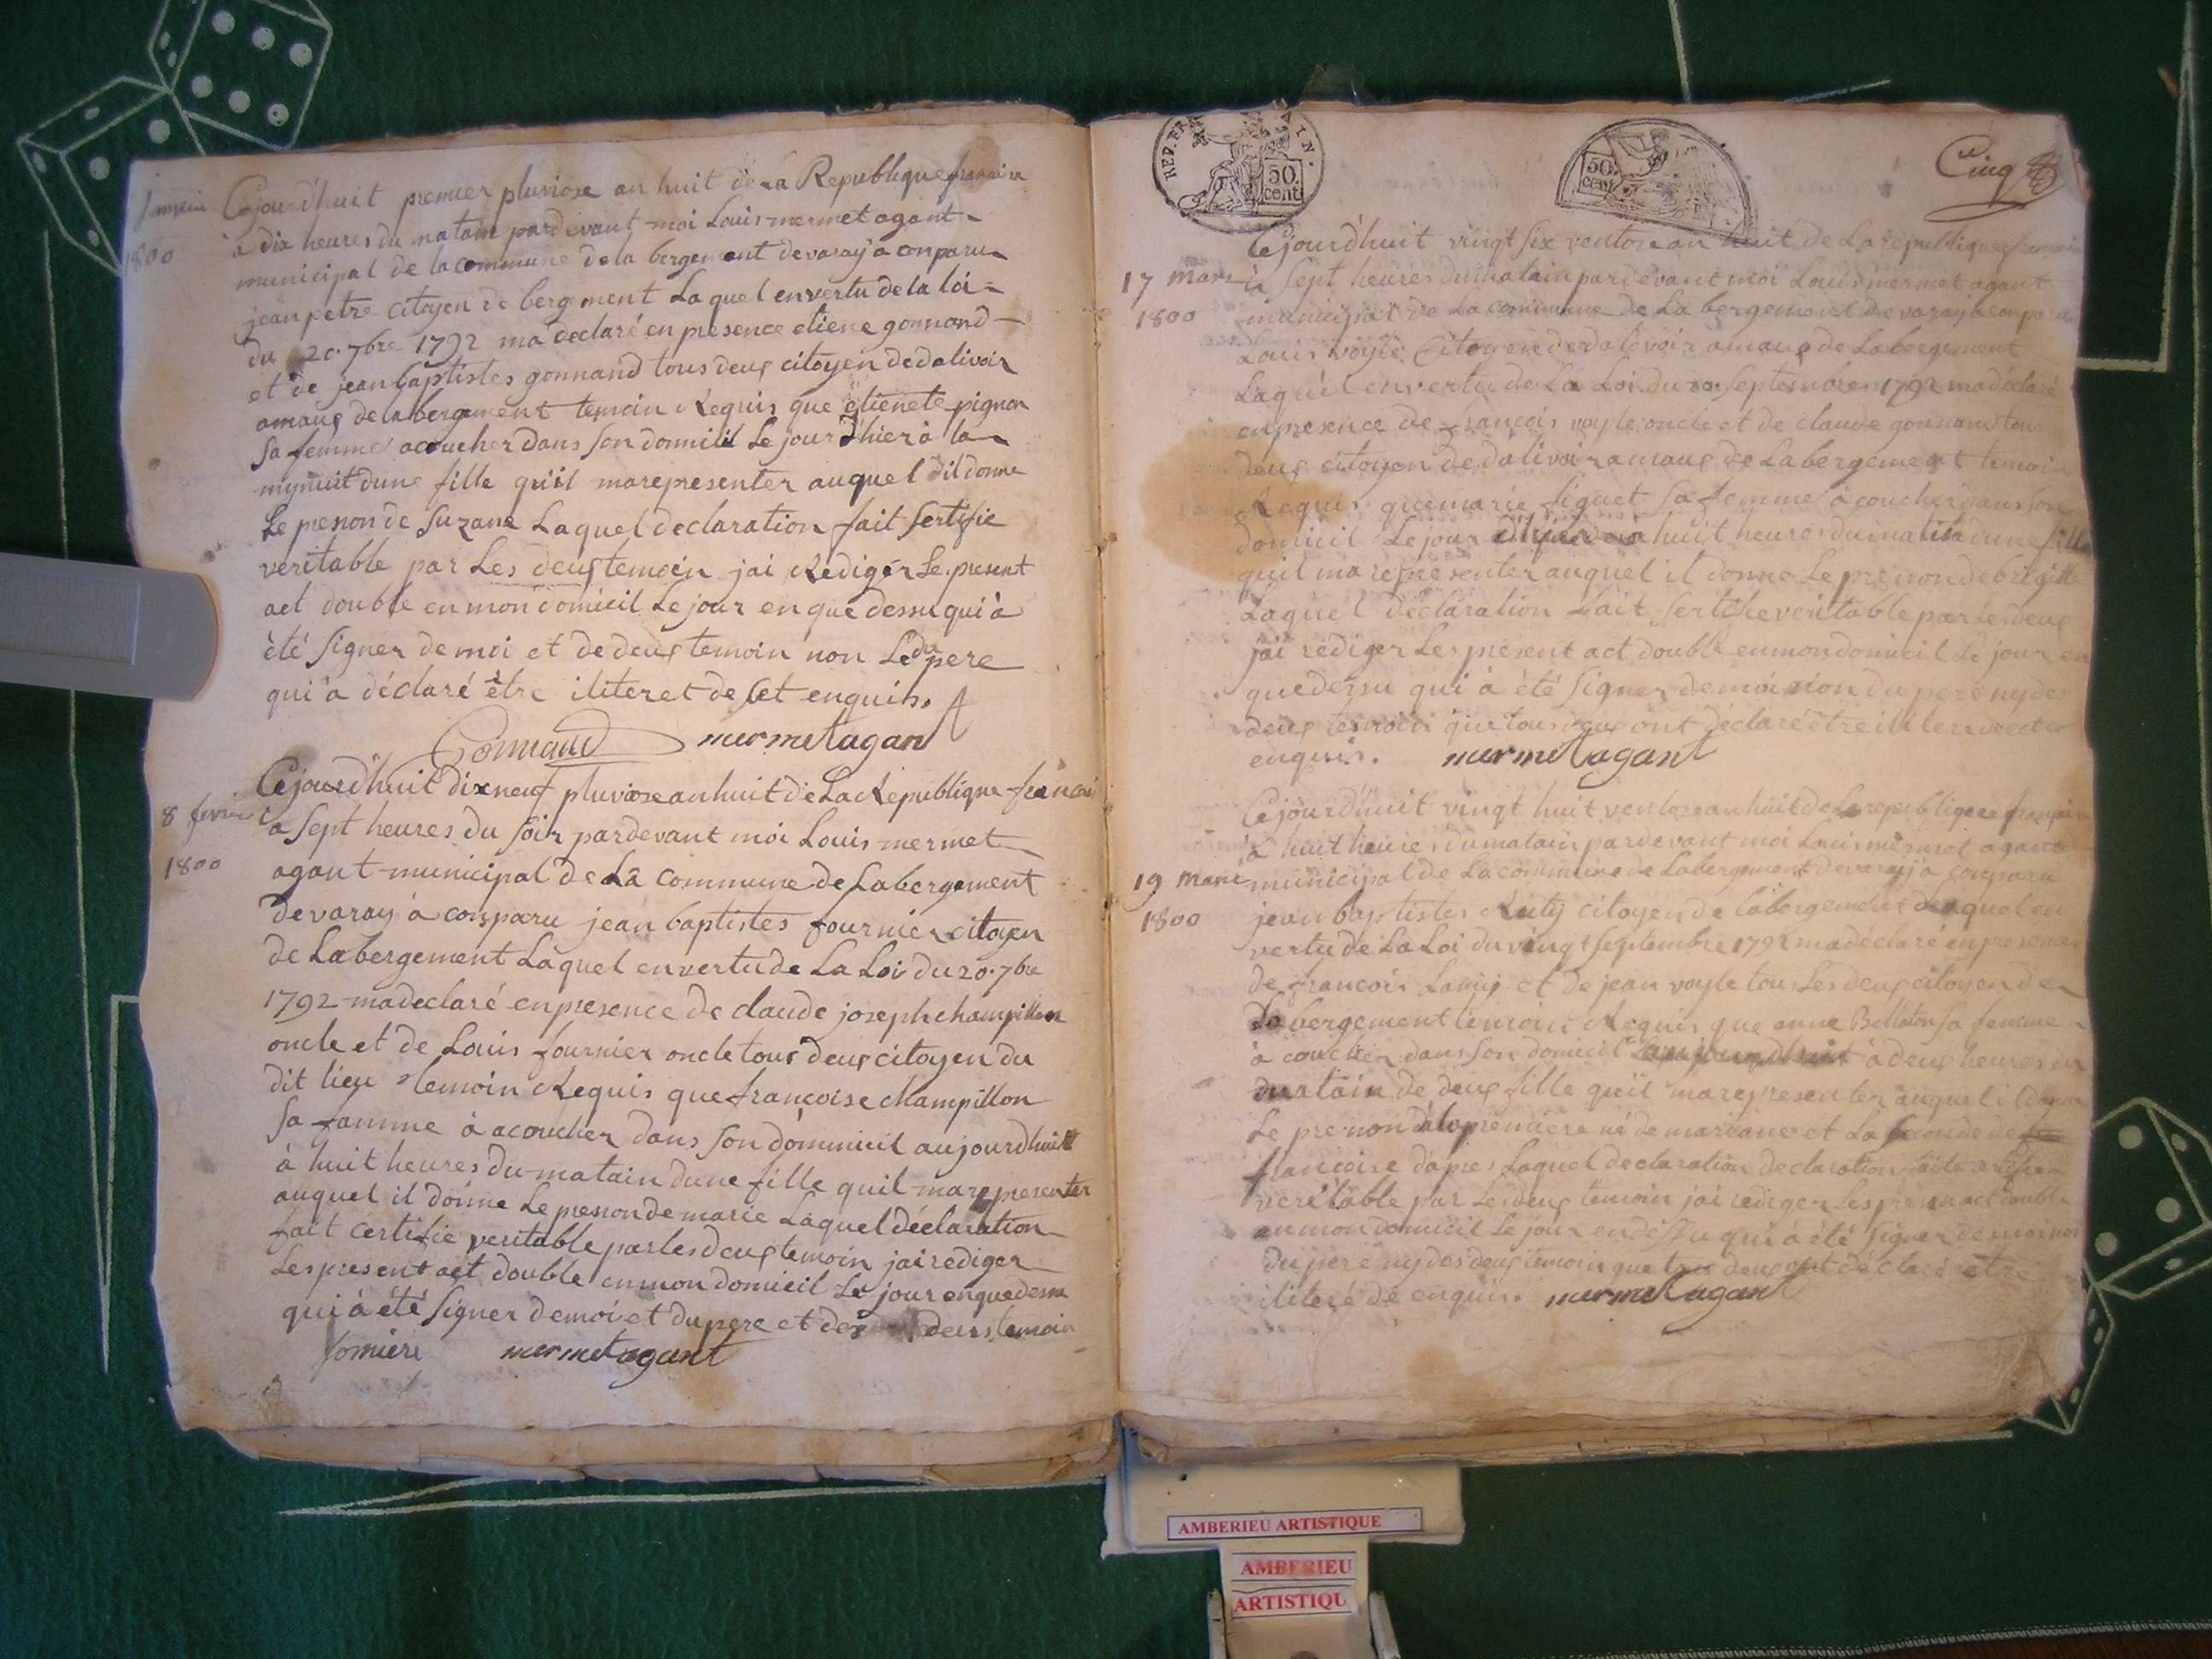 janvier
1800
Cejourd'huit premier pluviose an huit de La Republique francaise
à dix heures du matain pardevant moi Louis mermet agant
municipal de la commune de la bergement devaray à conparu
jean petre citoyen de bergement Laquel envertu dela loi
du 20. 7bre 1792 ma declaré en presence etiene gonnand
et de jean baptistes gonnand tous deux citoyen dedalivoir
amaux de labergement temoin Requis que etienete pignon
sa femme acoucher dans son domicil Le jour d'hier à la
mynuit dune fille qu'il marepresenter auquel dil donne
Le prenon de Suzane Laquel declaration fait sertifie
veritable par Les deux temoin jai Rediger Le present
act double en mon domicil Le jour en que dessu qui à
èté signer de moi et de deux temoin non Le du pere
qui à déclaré être iliteret de cet enquis.
Gonnand mermet agant
8 fevrier
1800
Cejourd'huit dixneuf pluviose an huit de La Republique francai
a sept heures du soir pardevant moi Louis mermet
agant municipal de La commune de Labergement
devaray à conparu jean baptistes fournier citoyen
de Labergement Laquel envertu de La Loi du 20. 7bre
1792 madeclaré enpresence de claude joseph champillon
oncle et de Louis fournier oncle tous deux citoyen du
dit lieu temoin Requis que francoise champillon
sa famme à acoucher dans son domicil aujourdhuit
à huit heures du matain dune fille quil marepresenter
auquel il donne Le prenon de marie Laquel déclaration
fait certifie veritable par les deux temoin jai rediger
Les present act double enmon domicil Le jour enque dessu
qui à été signer de moi et du pere et des deux temoin
fornière mermet agant
REP. FRA
50 cent
50 cent
Cinq
17 mars
1800
Cejourd'huit vingt six ventose an huit de La republique francai
à sept heures du matain pardevant moi Louis mermet agant
municipal de La commune de La bergement devaray à conparu
Louis voyle Citoyen dedalivoir amaux de Labergement
Laquel envertu de La Loi du 20 septembre 1792 madéclaré
enpresence de francois voyle oncle et de claude gonnand tous
deux citoyen dedalivoir amaux de Labergement temoin
Requis que marie siguet sa femme à coucher dans son
domicil Le jour à huit heures du matin dune fille
quil marepresenter auquel il donne Le prenon de brigitte
Laquel déclaration fait sertifie veritable par Les deux
jai rédiger Les présent act double enmon domicil Le jour en
que dessu qui à été signer de moi non du pere ny des
deux temoin que tous ont déclaré être
enquis. mermet agant
19 mars
1800
Cejourd'huit vingt huit ventose an huit de La republique francaise
à huit heures du matain pardevant moi Louis mermet agant
municipal de La commune de Labergement devaray à conparu
jean baptistes Ruty citoyen de labergement Laquel en
vertu de La Loi du vingt septembre 1792 madéclaré en presence
de francois Lamy et de jean voyle tous Les deux citoyen de
Labergement temoin Requis que anne Bellaton sa femme
à coucher dans son domicil à deux heures du
matain de deux fille quil marepresenter auquel il donne
Le prenon à la premiere né de mariane et La seconde de
francoise dapres Laquel declaration declaration faite
veritable par Les deux temoin jai rediger Les present act double
enmon domicil Le jour en dessu qui à été signer de moi non
du pere ny des deux temoin que tous deux ont déclaré etre
iliteré de enquis. mermet agant
AMBERIEU ARTISTIQUE
AMBERIEU
ARTISTIQU